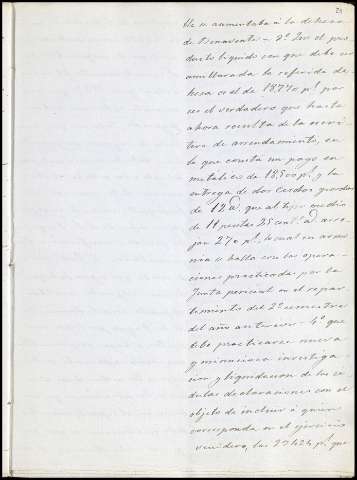 21
se aumentaba á la dehesa
de Benavente - 3º Que el pro
ducto líquido con que debe ser
amillarada la referida de
hesa es el de 18770 p.s por
ser el verdadero que hasta
ahora resulta de la escri
tura de arrendamiento, en
la que consta un pago en
metalico de 18,500 p.s y la
entrega de dos cerdos gordos
de 12 @. que al tipo medio
de 11 pesetas 25 cent.s @. arro
jan 270 p.s, lo cual en armo
nia se halla con las opera
ciones practicadas por la
Junta pericial en el repar
timiento del 2º semestre
del año anterior - 4º que
debe practicarse nueva
y minuciosa investiga
cion y liquidacion de las ce
dulas declaraciones con el
objeto de incluir á quien
corresponda en el ejercicio
venidero, las 27424 p.s que